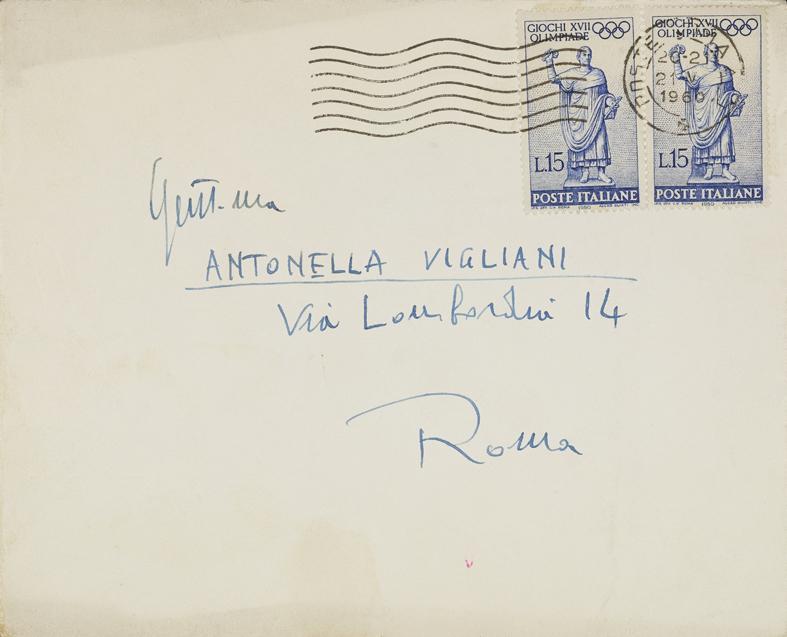 GIOCHI XVII
OLIMPIADE
L.15
POSTE ITALIANE
GIOCHI XVII
OLIMPIADE
L.15
POSTE ITALIANE
POSTE
20-21
21 V
1960
Gent.ma
ANTONELLA VIGLIANI
Via Lombardia 14
Roma